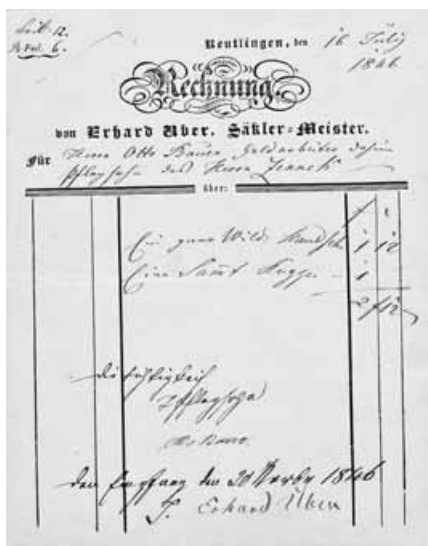 Reutlingen, den 16 July
1846
Rechnung
von Erhard Uber, Säkler-Meister.
Für Herrn Otto Bauer Goldarbeiter dahier
Pflegsohn des Herrn
über:
Ein paar Wild Handsch. 1 12
Eine Samt Kappe 1
2 f 12
die Richtigkeit
Pflegsohn
Otto Bauer
den Empfang den 30 Novbr 1846
T. Erhard Uber